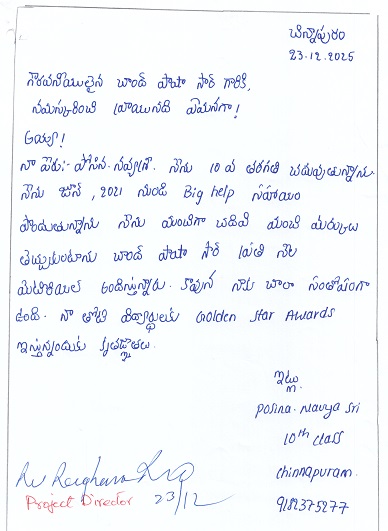 చిన్నాపురం
23.12.2025
గౌరవనీయులైన చాంద్ పాషా సార్ గారికి,
నమస్కరించి వ్రాయునది ఏమనగా!
అయ్యా!
నా పేరు:- పోసిన. నవ్యశ్రీ. నేను 10 వ తరగతి చదువుతున్నాను.
నేను జూన్, 2021 నుండి Big help సహాయం
పొందుతున్నాను నేను మంచిగా చదివి మంచి మార్కులు
తెచ్చుకుంటాను చాంద్ పాషా సార్ ప్రతి నెల
మెటీరియల్ అందిస్తున్నారు. కావున నాకు చాలా సంతోషంగా
ఉంది. నా తోటి విద్యార్థులకు Golden Star Awards
ఇస్తున్నందుకు కృతజ్ఞతలు.
ఇట్లు
Posina. Navya Sri
10th class
chinnapuram.
9182375277
Project Director 23/12